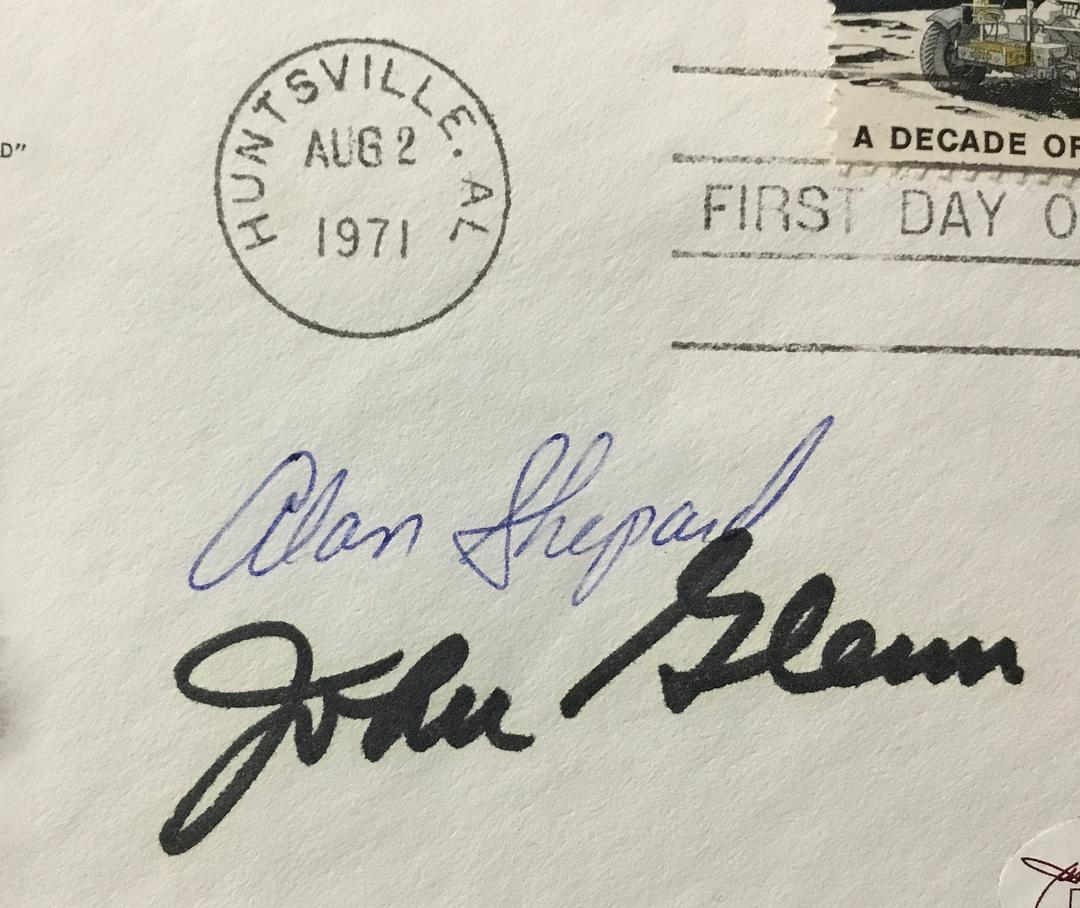 D”
HUNTSVILLE. AL
AUG 2
1971
A DECADE OF
FIRST DAY O
Alan Shepard
John Glenn